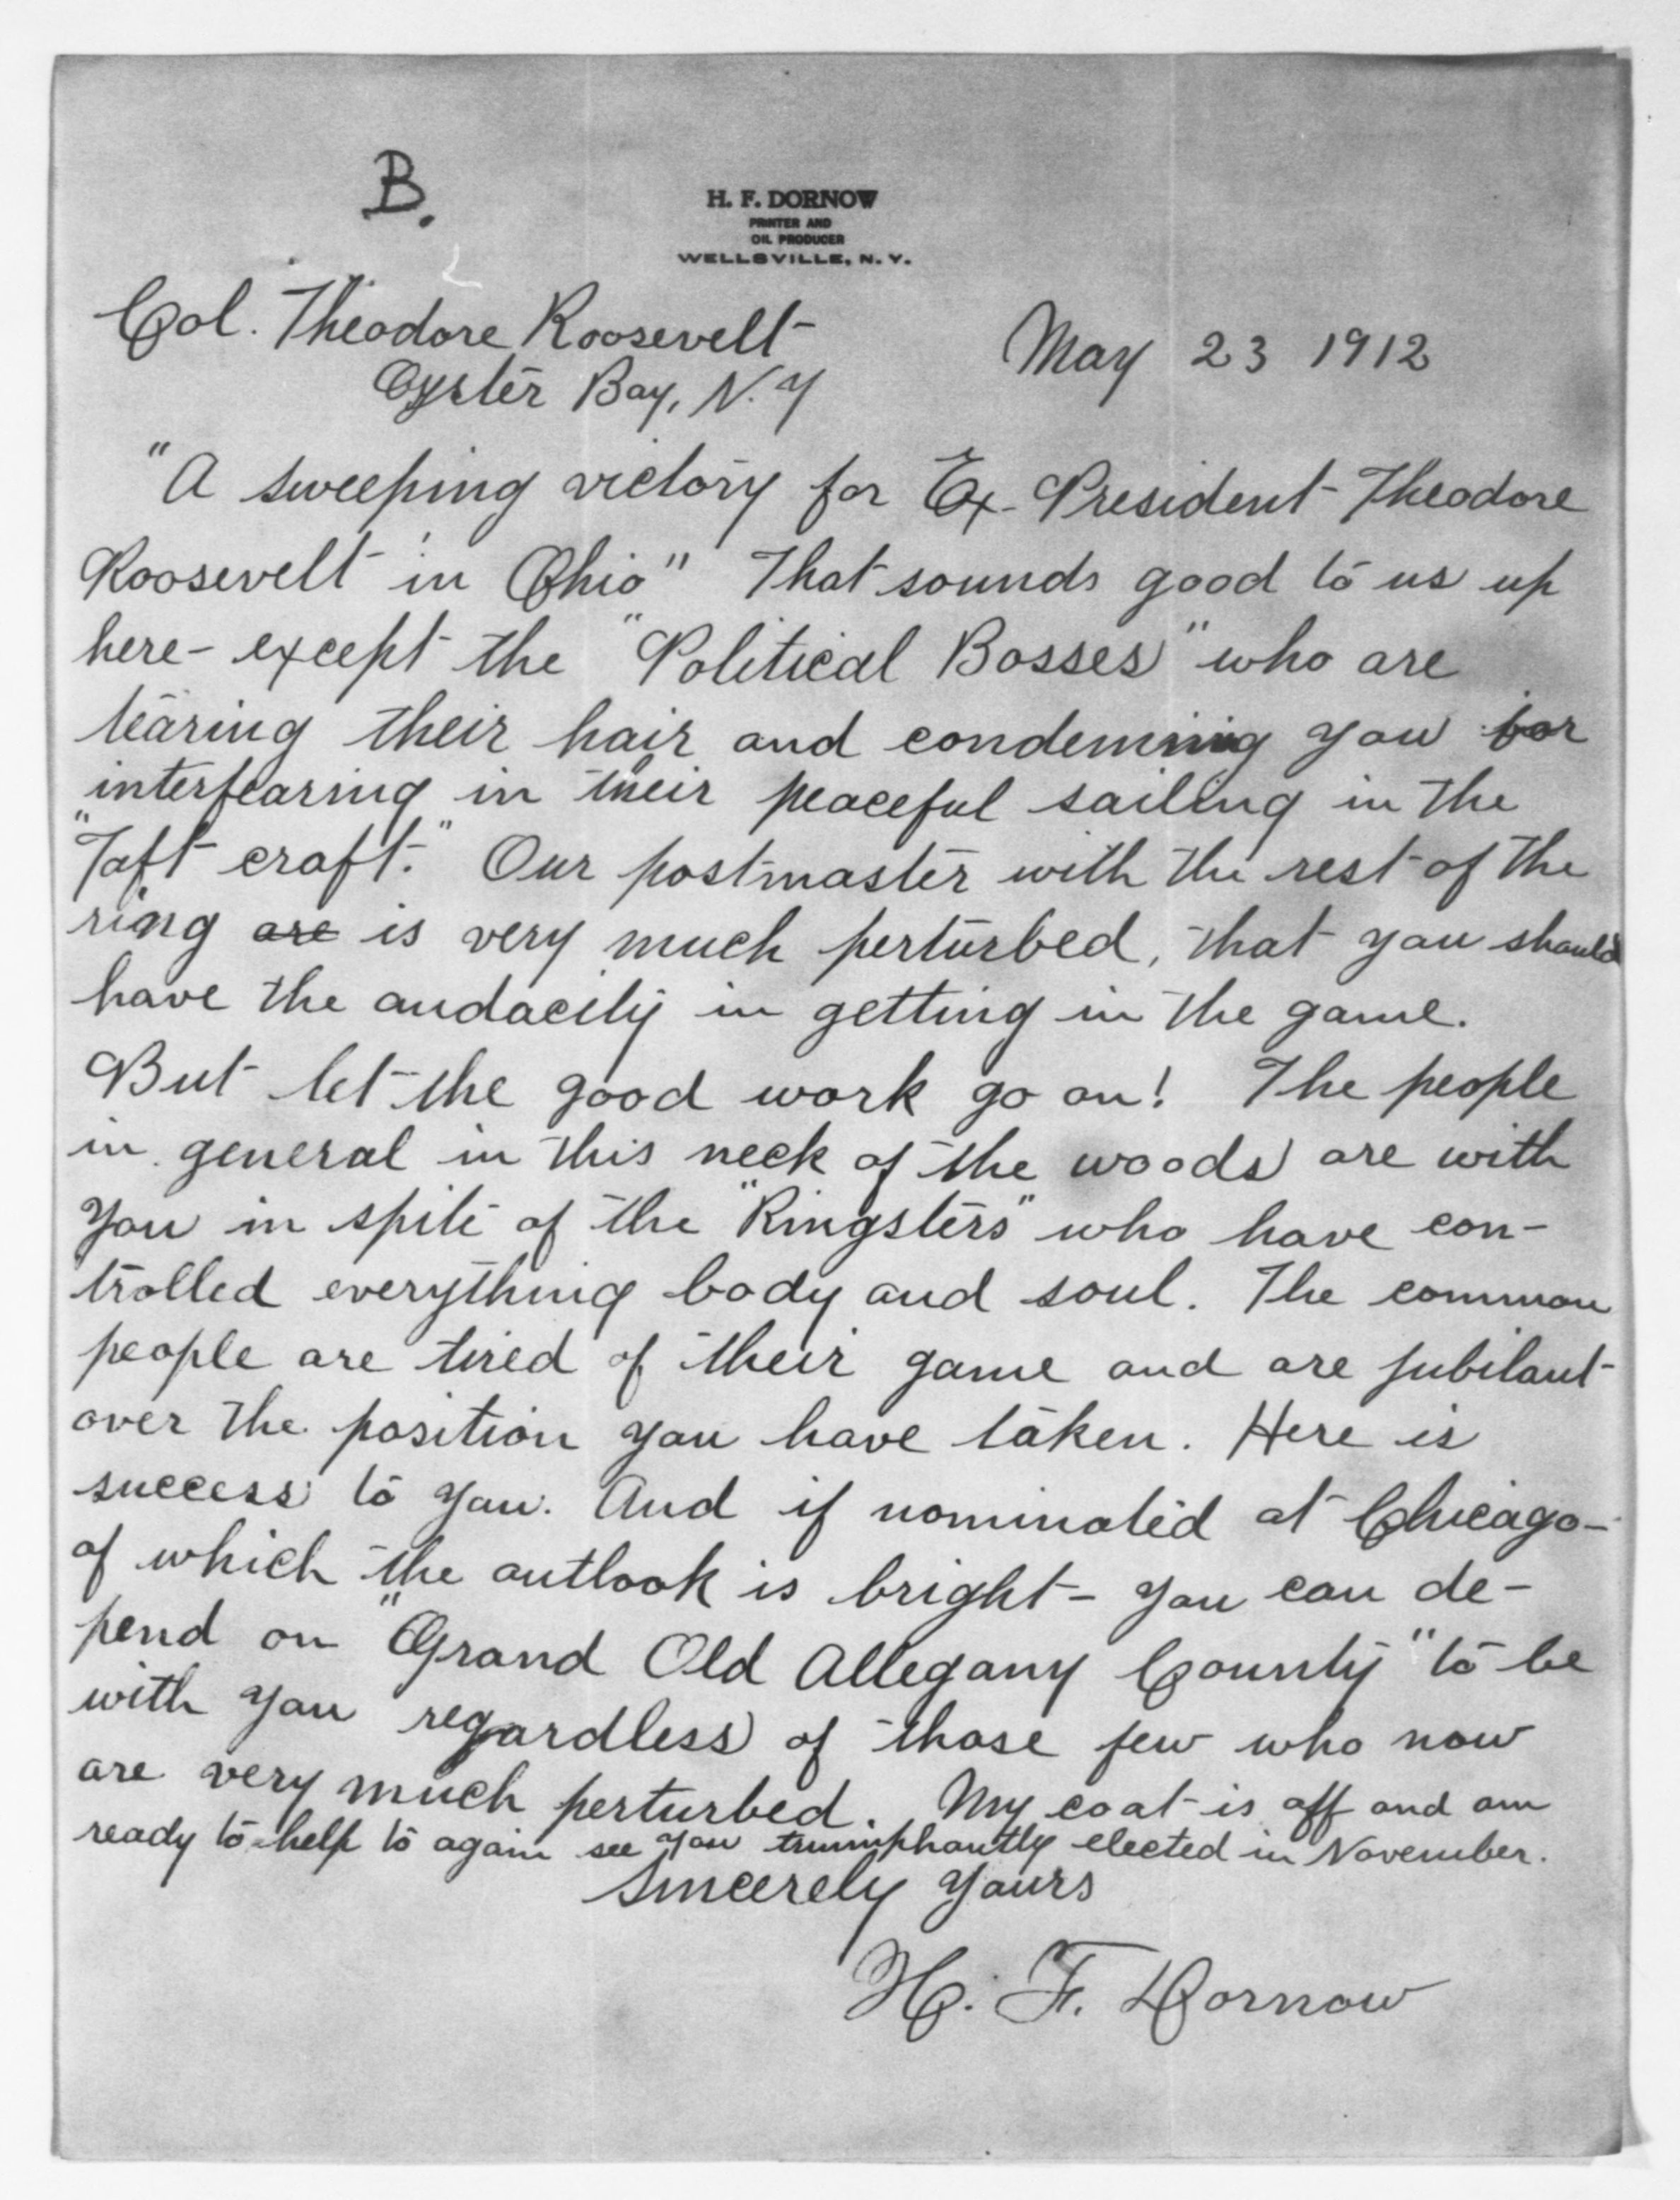 B.
H. F. DORNOW
PRINTER AND
OIL PRODUCER
WELLSVILLE, N. Y.
Col. Theodore Roosevelt
May 23 1912
Oyster Bay, N. Y
"A sweeping victory for Ex-President Theodore
Roosevelt in Ohio" That sounds good to us up
here - except the "Political Bosses" who are
tearing their hair and condemning you for
interfearing in their peaceful sailing in the
"Taft craft." Our postmaster with the rest of the
ring are is very much perturbed, that you should
have the audacity in getting in the game.
But let the good work go on! The people
in general in this neck of the woods are with
you in spite of the "Ringsters" who have con-
trolled everything body and soul. The common
people are tired of their game and are jubilant
over the position you have taken. Here is
success to you. And if nominated at Chicago -
of which the outlook is bright - you can de-
pend on "Grand Old Allegany County" to be
with you regardless of those few who now
are very much perturbed. My coat is off and am
ready to help to again see you triumphantly elected in November.
Sincerely Yours
H. F. Dornow